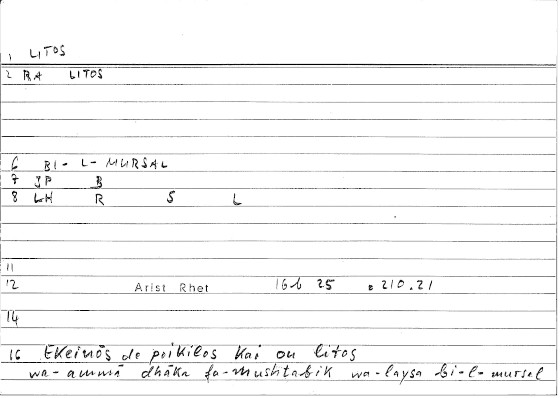 1 LITOS
2 RA LITOS
6 BI-L-MURSAL
7 JP B
8 LH R S L
11
12 Arist Rhet 16b 25 = 210.21
14
16 Ekeinōs de poikilos kai ou litos
wa-ammā dhāka fa-mushtabik wa-laysa bi-l-mursal